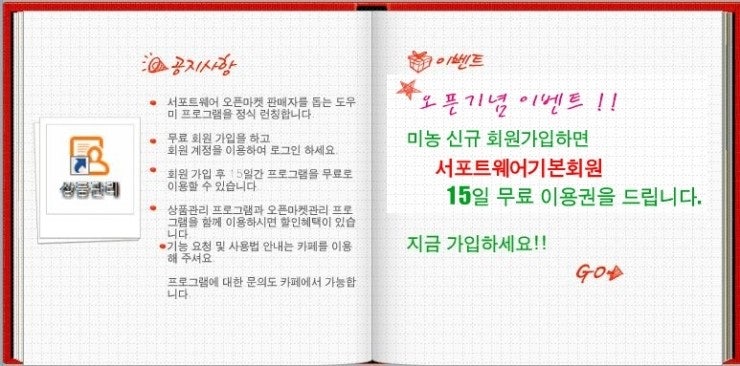 공지사항
상품관리
서포트웨어 오픈마켓 판매자를 돕는 도우
미 프로그램을 정식 런칭합니다.
무료 회원 가입을 하고
회원 계정을 이용하여 로그인 하세요.
회원 가입 후 15일간 프로그램을 무료로
이용할 수 있습니다.
상품관리 프로그램과 오픈마켓관리 프로
그램을 함께 이용하시면 할인혜택이 있습
니다.
기능 요청 및 사용법 안내는 카페를 이용
해 주셔요.
프로그램에 대한 문의도 카페에서 가능합
니다.
이벤트
오픈기념 이벤트 !!
미농 신규 회원가입하면
서포트웨어기본회원
15일 무료 이용권을 드립니다.
지금 가입하세요!!
GO